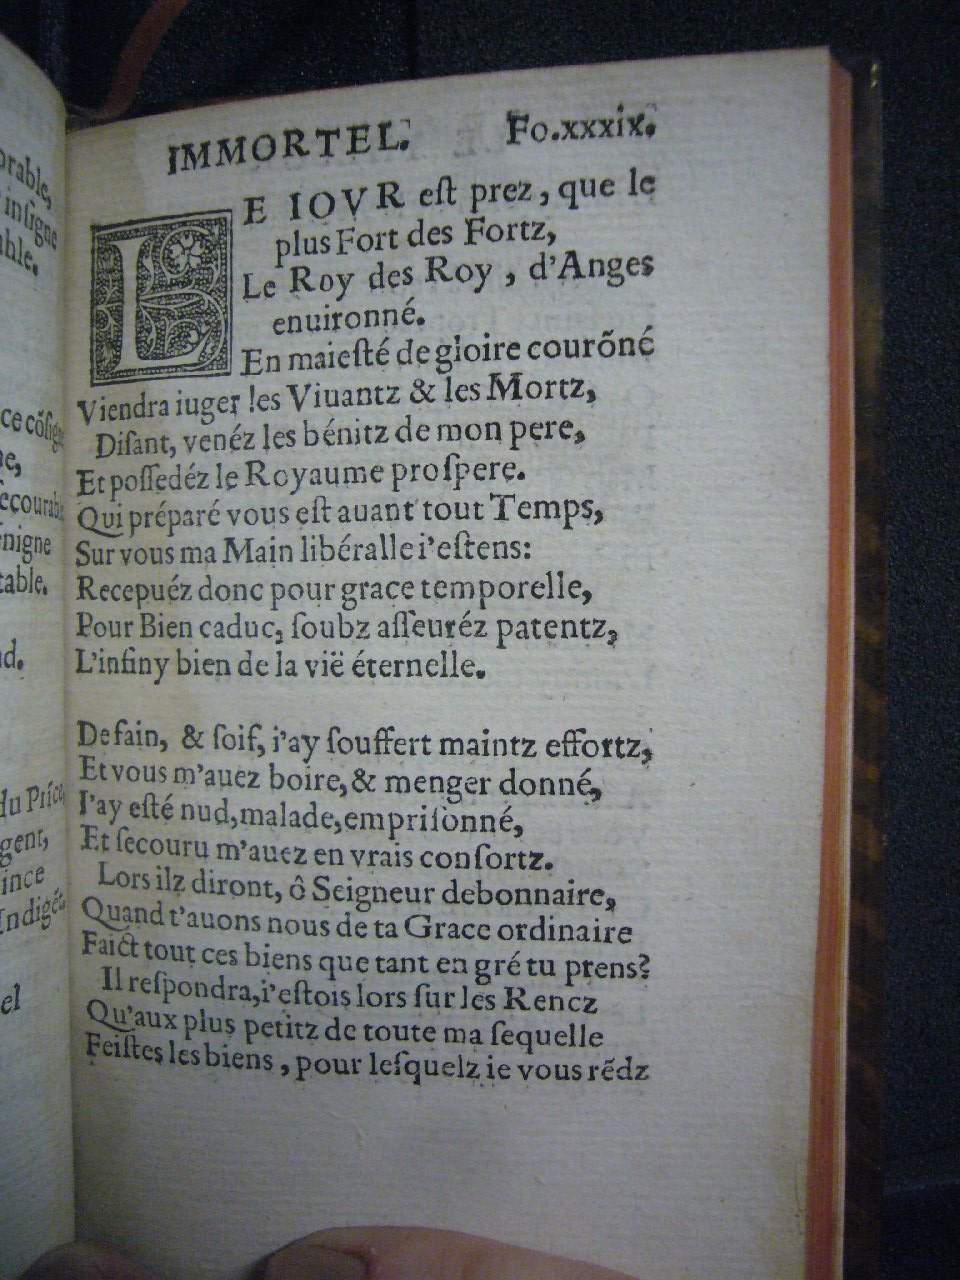 IMMORTEL. Fo.xxxix.
LE IOVR eſt prez, que le
plus Fort des Fortz,
Le Roy des Roy, d'Anges
enuironné.
En maieſté de gloire courõné
Viendra iuger les Viuantz & les Mortz,
Diſant, venéz les bénitz de mon pere,
Et poſſedéz le Royaume proſpere.
Qui préparé vous eſt auant tout Temps,
Sur vous ma Main libéralle i'eſtens:
Recepuéz donc pour grace temporelle,
Pour Bien caduc, ſoubz aſſeuréz patentz,
L'infiny bien de la vië éternelle.
De fain, & ſoif, i'ay ſouffert maintz effortz,
Et vous m'auez boire, & menger donné,
I'ay eſté nud, malade, empriſonné,
Et ſecouru m'auez en vrais confortz.
Lors ilz diront, ô Seigneur debonnaire,
Quand t'auons nous de ta Grace ordinaire
Faict tout ces biens que tant en gré tu prens?
Il reſpondra, i'eſtois lors ſur les Rencz
Qu'aux plus petitz de toute ma ſequelle
Feiſtes les biens, pour leſquelz ie vous rẽdz